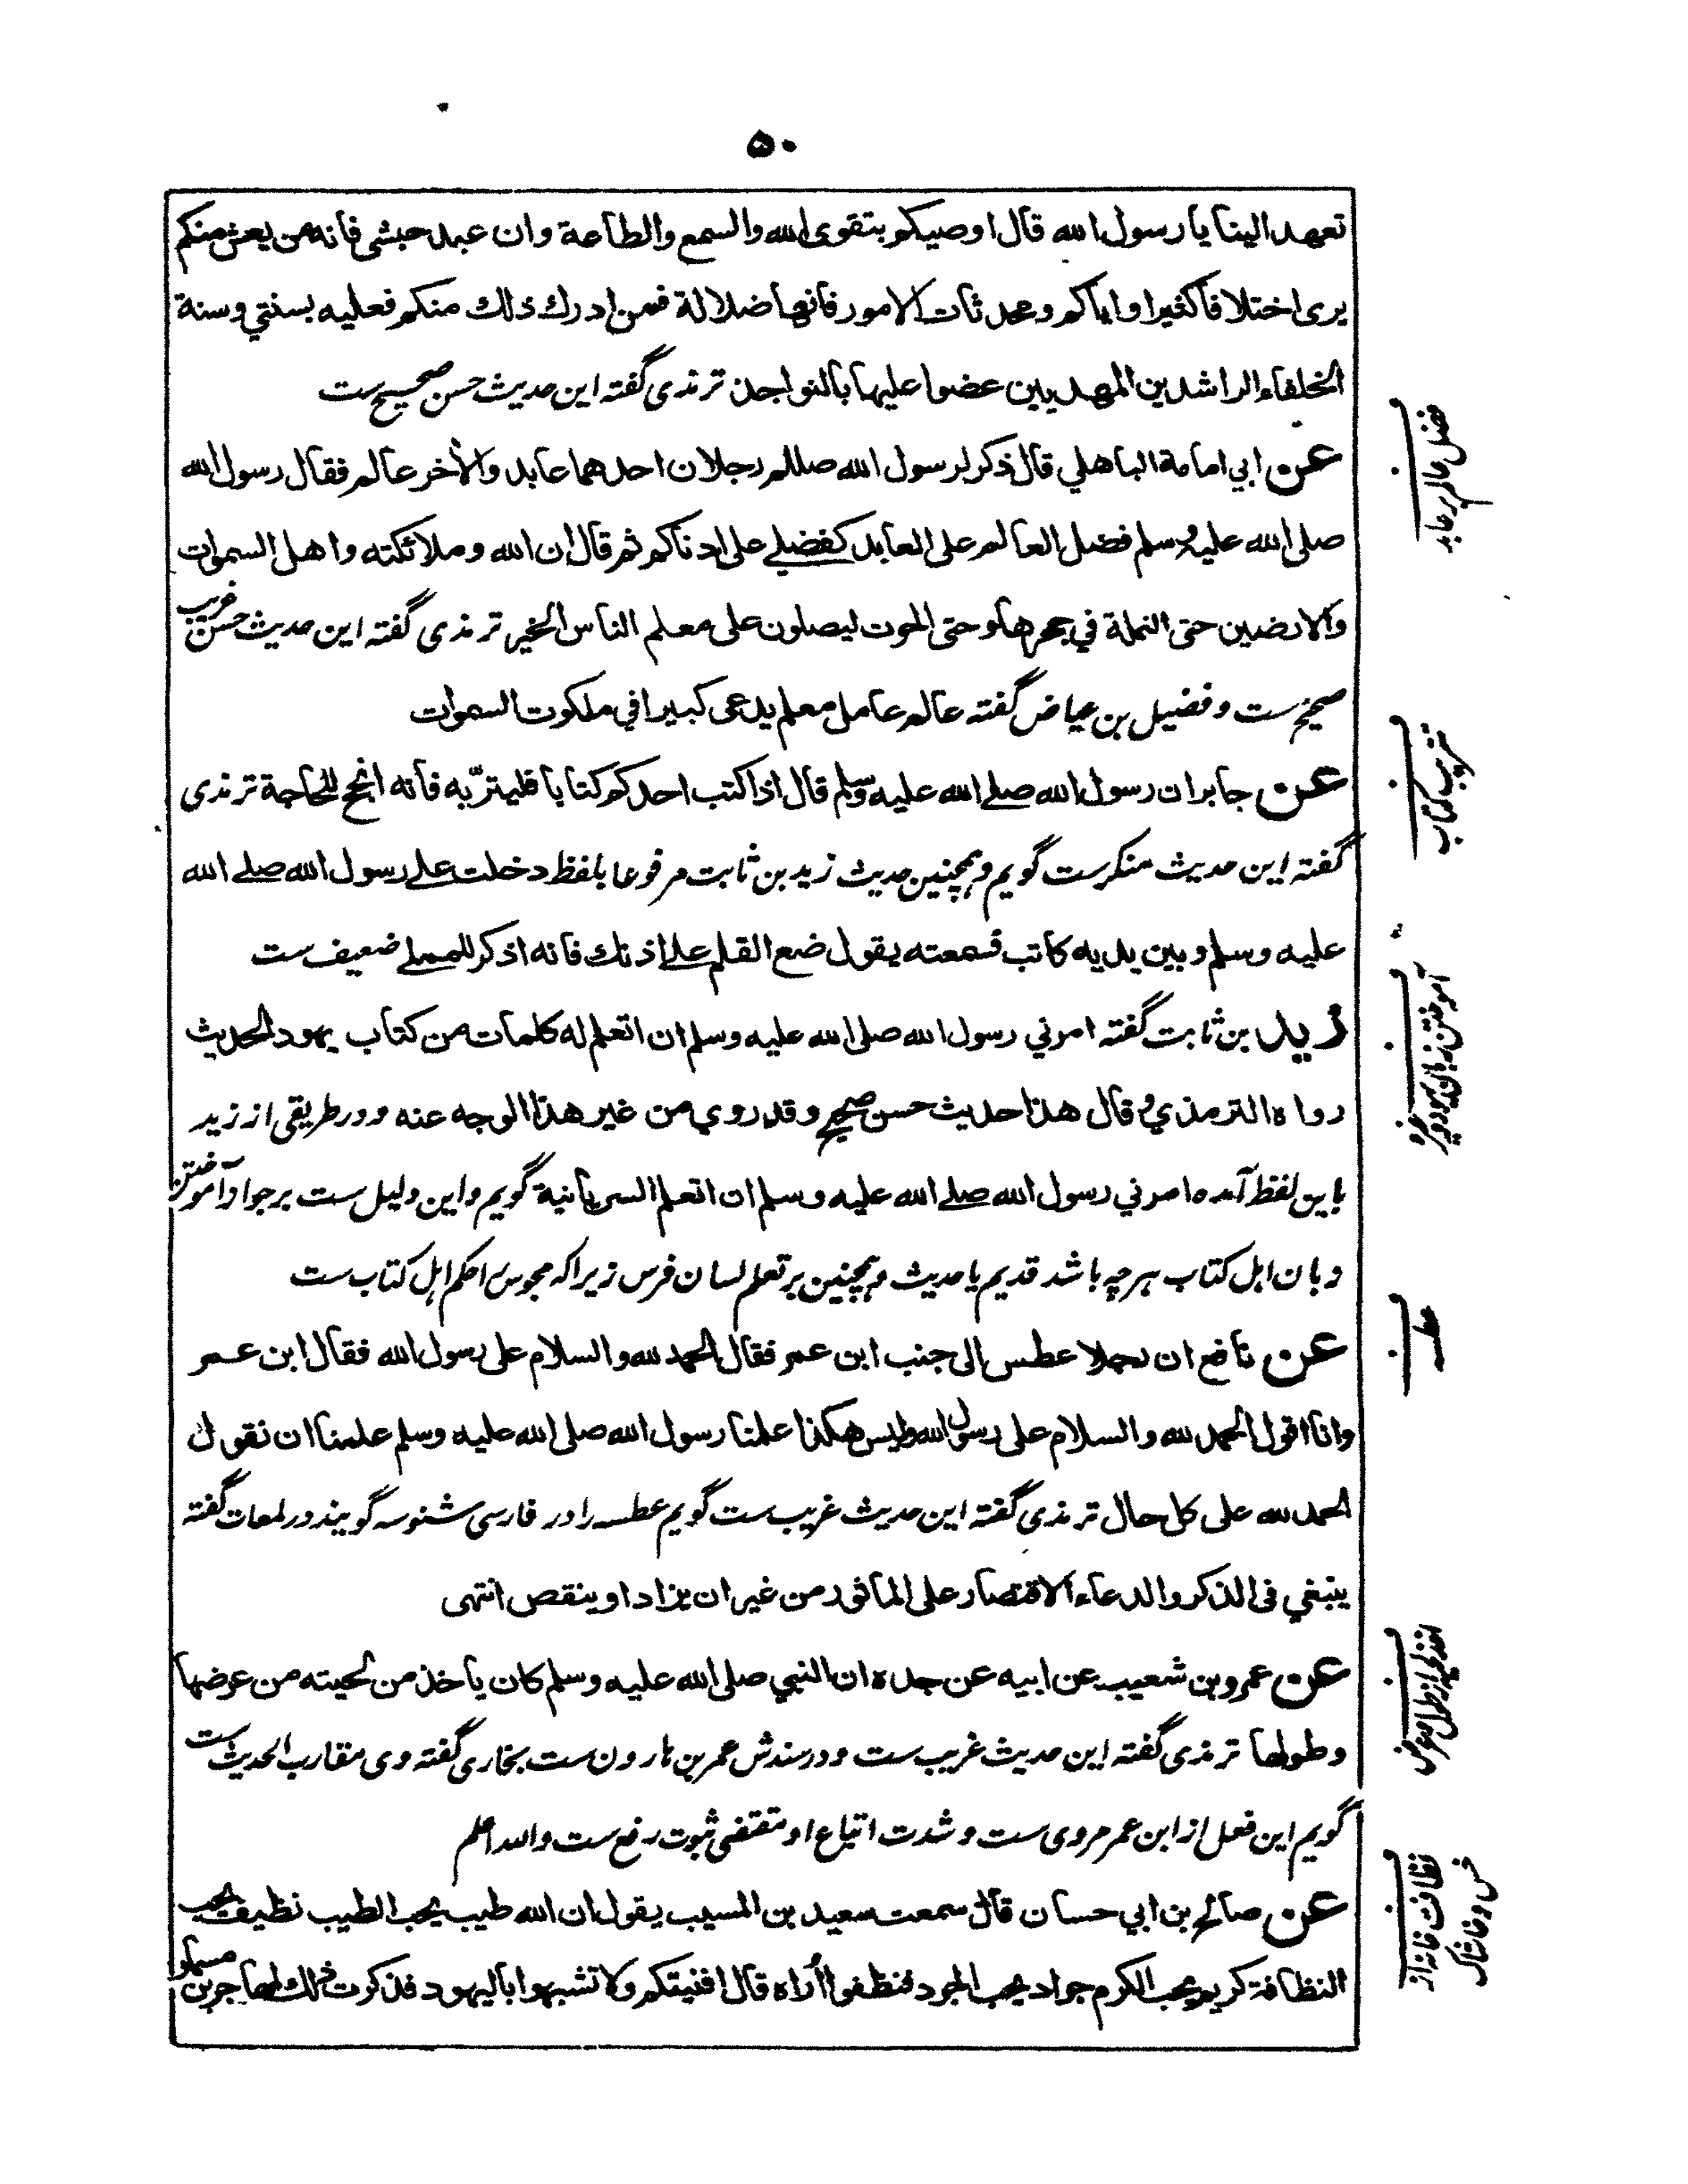 ۵۰
تعهد الينا يا رسول الله قال اوصيكم بتقوى الله والسمع والطاعة وان عبد حبشى فانه من يعش منكم
يرى اختلافا كثيرا واياكم ومحدثات الامور فانها ضلالة فمن ادرك ذلك منكم فعليه بسنتي وسنة
الخلفاء الراشدين المهديين عضوا عليها بالنواجذ ترمذى گفته اين حديث حسن صحيح ست
عن ابي امامة الباهلي قال ذكر لرسول الله صللم رجلان احدهما عابد والأخر عالم فقال رسول الله
صلى الله عليه وسلم فضل العالم على العابد كفضلے على ادناكم ثم قال ان الله وملائكته واهل السموات
والارضين حتى النملة في جحرها وحتى الحوت ليصلون على معلم الناس الخير ترمذى گفته اين حديث حسن غريب
صحيح ست وفضيل بن عياض گفته عالم عامل معلم يدعى كبيرا في ملكوت السموات
عن جابر ان رسول الله صلے الله عليه وسلم قال اذا كتب احدكم كتابا فليترّبه فانه انجح للحاجة ترمذى
گفته اين حديث منكرست گويم وهمچنين حديث زيد بن ثابت مرفوعا بلفظ دخلت علے رسول الله صلے الله
عليه وسلم وبين يديه كاتب فسمعته يقول ضع القلم علے اذنك فانه اذكر للمملے ضعيف ست
زيد بن ثابت گفته امرني رسول الله صلى الله عليه وسلم ان اتعلم له كلمات من كتاب يهود الحديث
رواه الترمذي وقال هذا حديث حسن صحيح وقد روي من غير هذا الوجه عنه ودر طريقى از زيد
باين لفظ آمده امرني رسول الله صلے الله عليه وسلم ان اتعلم السريانية گويم واين دليل ست بر جواز آموختن
زبان اهل كتاب هرچه باشد قديم يا حديث وهمچنين بر تعلم لسان فرس زيراكه مجوس را حكم اهل كتاب ست
عن نافع ان رجلا عطس الى جنب ابن عمر فقال الحمد لله والسلام على رسول الله فقال ابن عمر
وانا اقول الحمد لله والسلام على رسول الله وليس هكذا علمنا رسول الله صلى الله عليه وسلم علمنا ان نقول
الحمد لله على كل حال ترمذى گفته اين حديث غريب ست گويم عطسه را در فارسى شنوسه گويند در لمعات گفته
ينبغي فى الذكر والدعاء الاقتصار على الماثور من غير ان يزاد او ينقص انتهى
عن عمرو بن شعيب عن ابيه عن جده ان النبي صلى الله عليه وسلم كان ياخذ من لحيته من عرضها
وطولها ترمذى گفته اين حديث غريب ست ودر سندش عمر بن هارون ست بخارى گفته وى مقارب الحديث ست
گويم اين فعل از ابن عمر مروى ست وشدت اتباع او مقتضى ثبوت رفع ست والله اعلم
عن صالح بن ابي حسان قال سمعت سعيد بن المسيب يقول ان الله طيب يحب الطيب نظيف يحب
النظافة كريم يحب الكرم جواد يحب الجود فنظفوا أُراه قال افنيتكم ولا تشبهوا باليهود فذكرت ذلك لمهاجر بن مسمار
فضل عالم بر عابد
تتريب كتاب
آموختن زبان يهود وغيره
عطسه
اخذ لحيه از طول وعرض
نظافت خانه از
خس وخاشاك